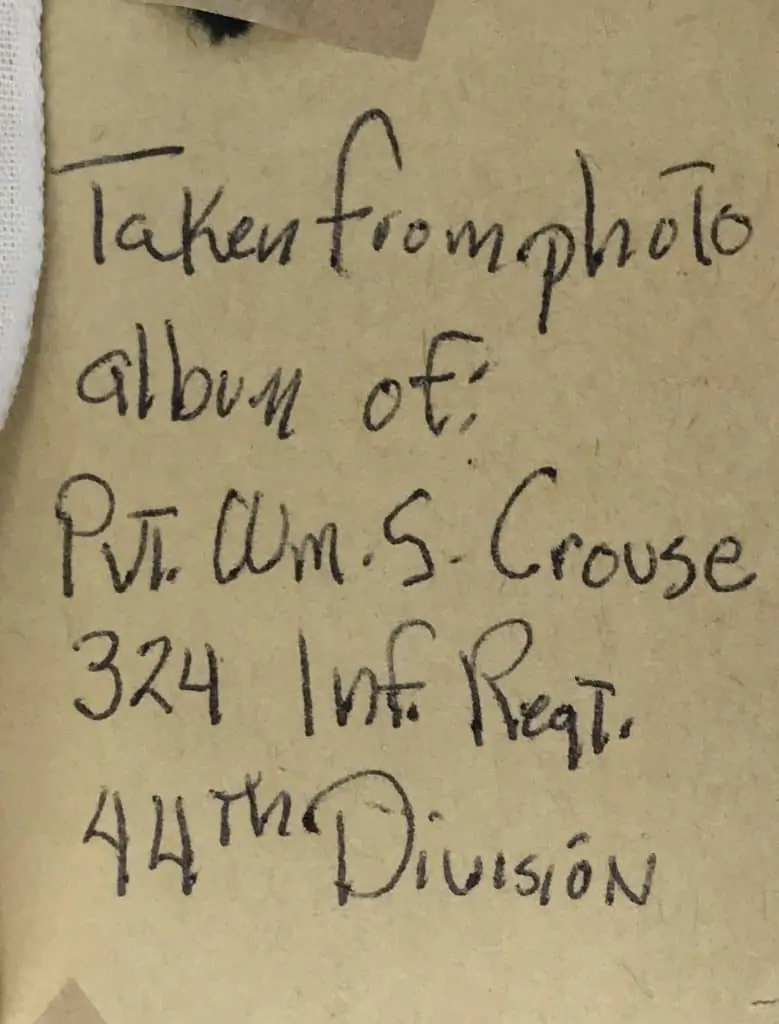 Taken from photo
album of:
Pvt. Wm. S. Crouse
324 Inf. Regt.
44th Division